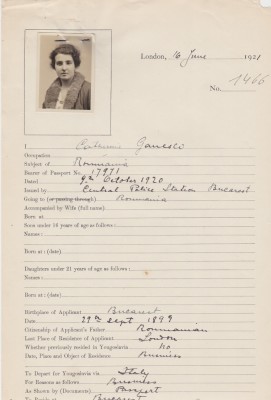 London, 16 June 1921
No. 1466
I
Occupation
Subject of Roumania
Bearer of Passport No. 17971
Dated 9th October 1920
Issued by Central Police Station Bucarest
Going to (or passing through) Roumania
Accompanied by Wife (full name)
Born at
Sons under 16 years of age as follows:
Names:
Born at: (date)
Daughters under 21 years of age as follows:
Names:
Born at: (date)
Birthplace of Applicant Bucarest
Date 29th Sept 1899
Citizenship of Applicant's Father Roumanian
Last Place of Residence of Applicant London
Whether previously resided in Yugoslavia no
Date, Place and Object of Residence Business
To Depart for Yougoslavia via Italy
For Reasons as follows Business
As Shown by (Documents) Passport
Bucarest